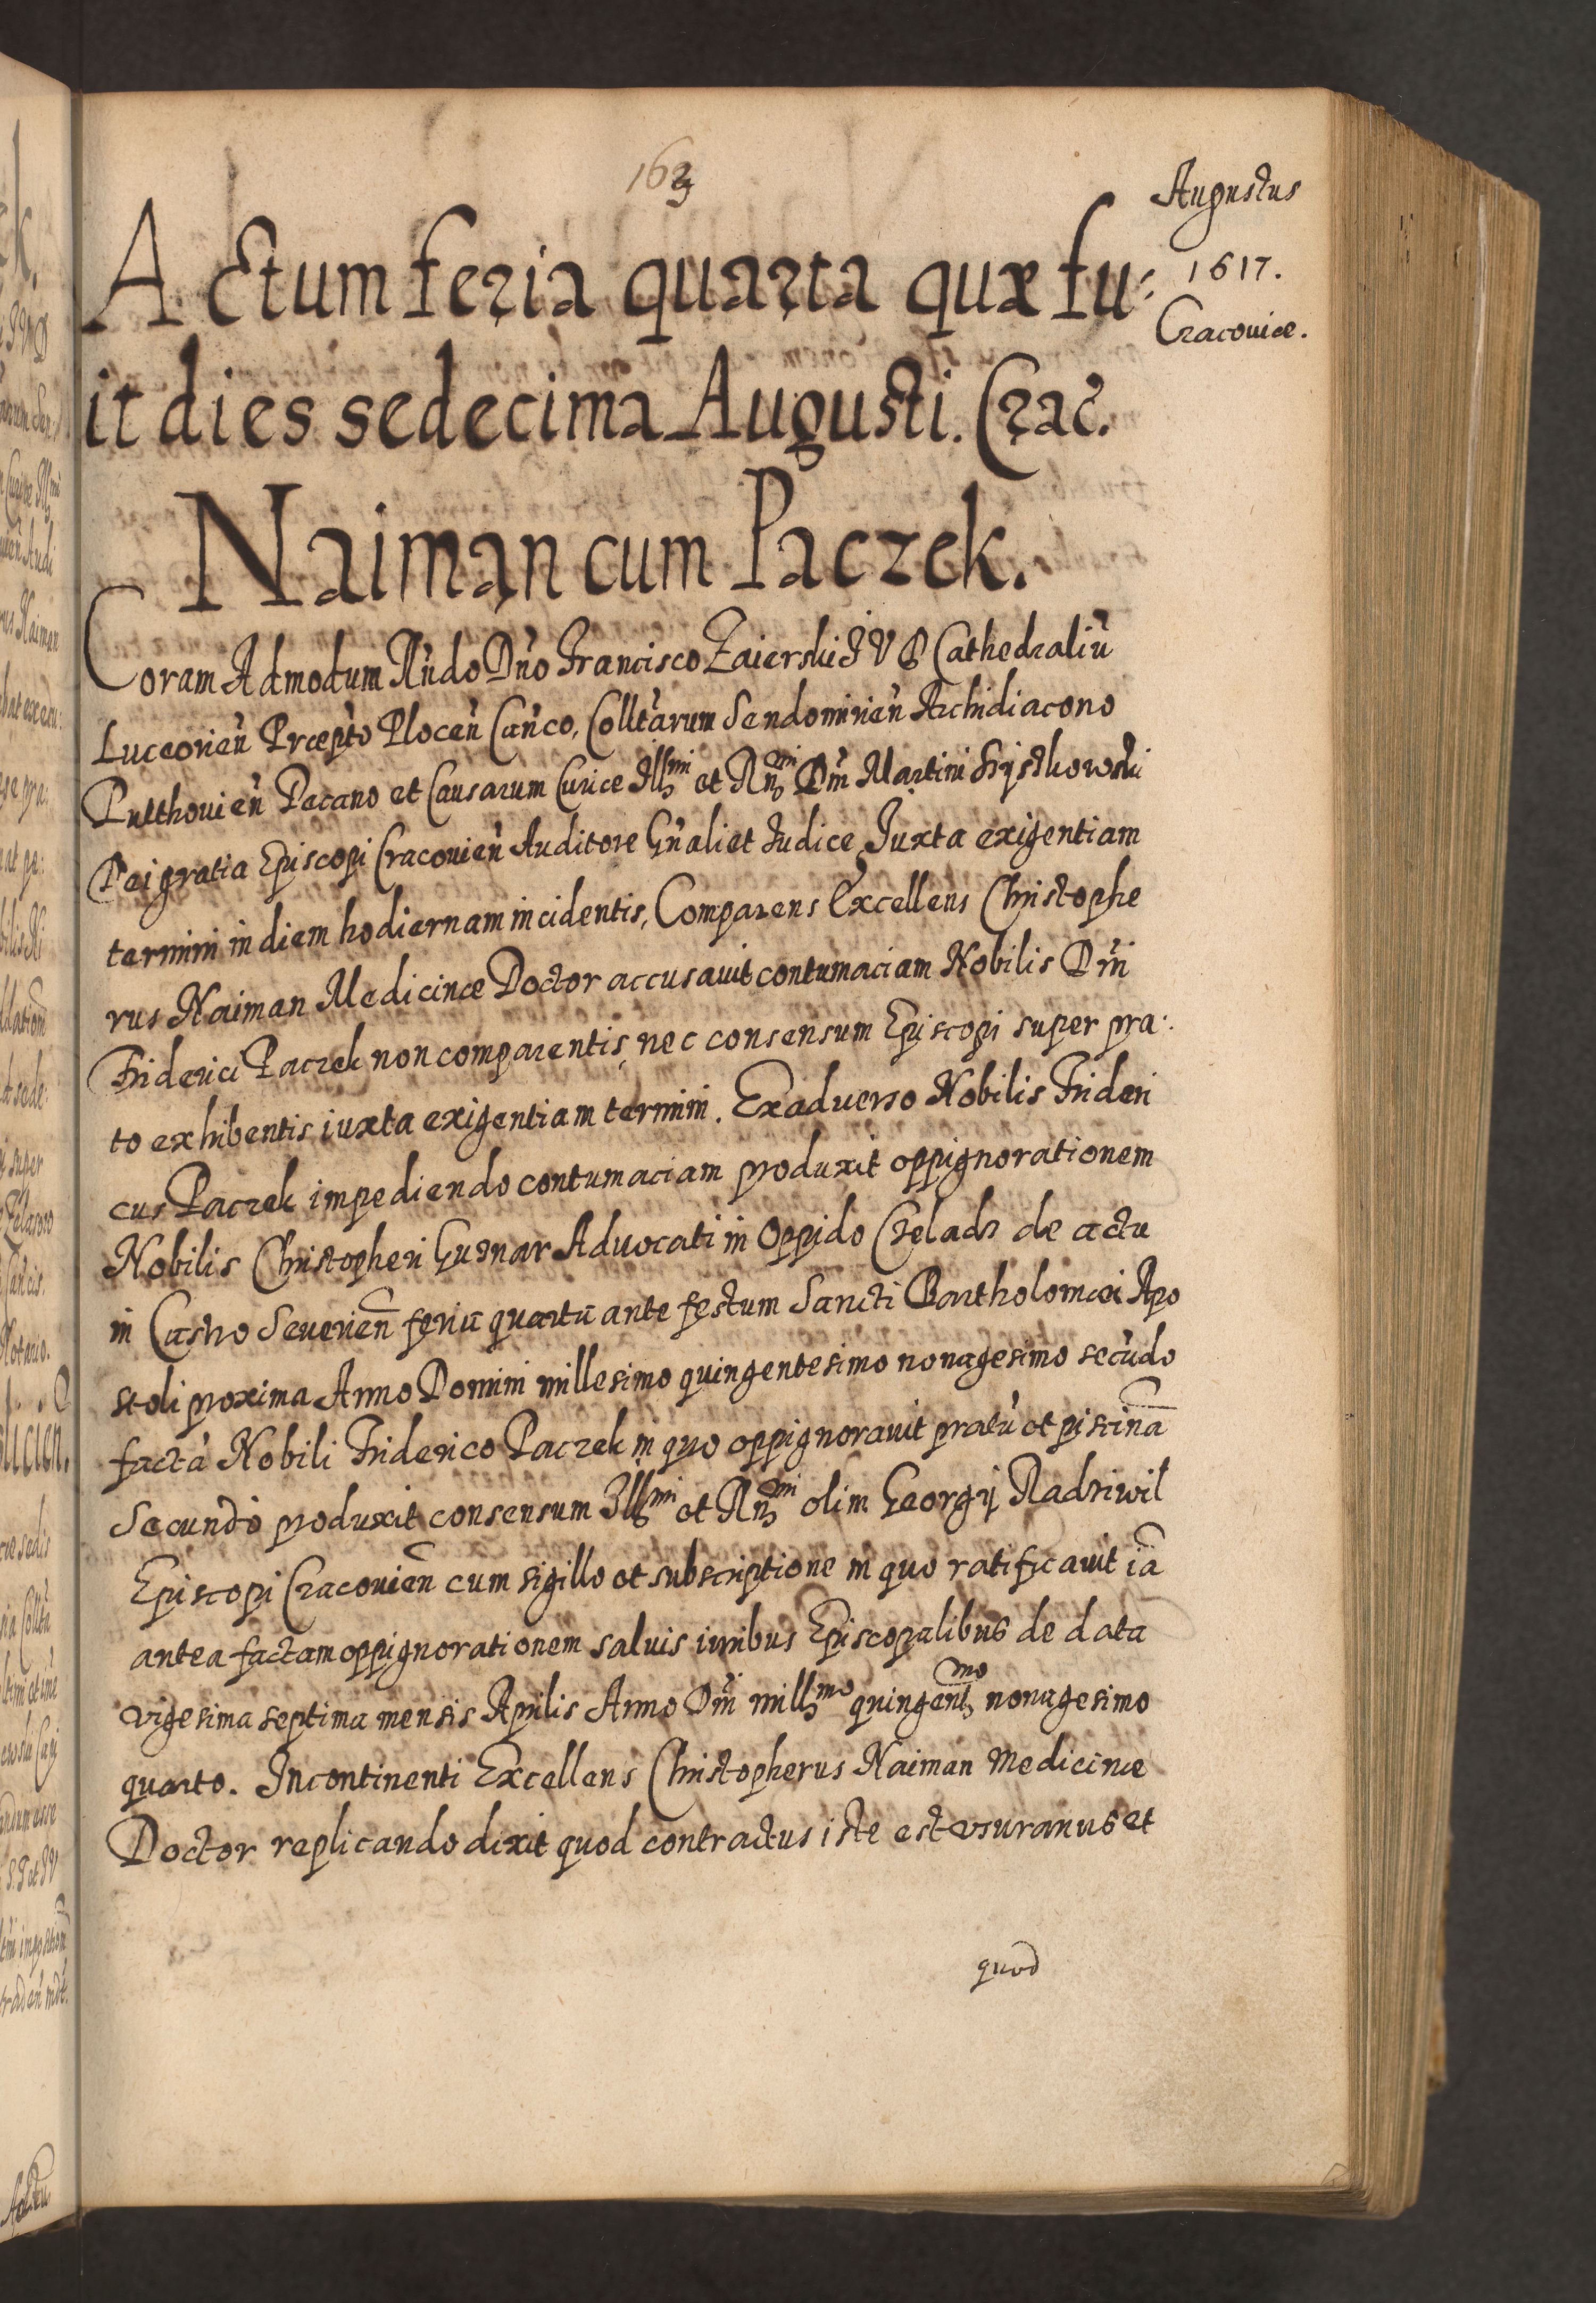 163
Augustus
1617.
Cracouiæ.
Actum feria quarta quæ fu:
it dies sedecima Augusti. Crac̃.
Naiman cum Paczek.
Coram Admodum Rñdo Dño Francisco Zaierski I V D Cathedraliũ
Luceorieñ Præpto Ploceñ Cañco, Colltarum Sendomirieñ Archidiacono
Pulthouieñ Decano et Causarum Curiæ Illmi et Rmi Dñi Martini Szyszkowski
Dei gratia Episcopi Cracouieñ Auditore Gñali et Iudice, Iuxta exigentiam
termini in diem hodiernam incidentis, Comparens Excellens Christophe
rus Naiman Medicinæ Doctor accusauit contumaciam Nobilis Dñi
Friderici Paczek non comparentis, nec consensum Episcopi super pra:
to exhibentis iuxta exigentiam termini. Ex aduerso Nobilis Frideri
cus Paczek impediendo contumaciam produxit oppignorationem
Nobilis Christopheri Gusnar Aduocati in Oppido Czeladz de actu
in Castro Seuerieñ feria quarta ante festum Sancti Bartholomæi Apo
stoli proxima Anno Domini millesimo quingentesimo nonagesimo secũdo
factã Nobili Friderico Paczek in quo oppignorauit pratũ et piscinã
Secundò produxit consensum Illmi et Rmi olim Georgij Radziwil
Episcopi Cracouieñ cum sigillo et subscriptione in quo ratificauit iã
antea factam oppignorationem saluis iuribus Episcopalibus de data
vigesima septima mensis Aprilis Anno Dñi millmo quingentmo nonagesimo
quarto. Incontinenti Excellens Christopherus Naiman Medicinæ
Doctor replicando dixit quod contractus iste est vsurarius et
quod